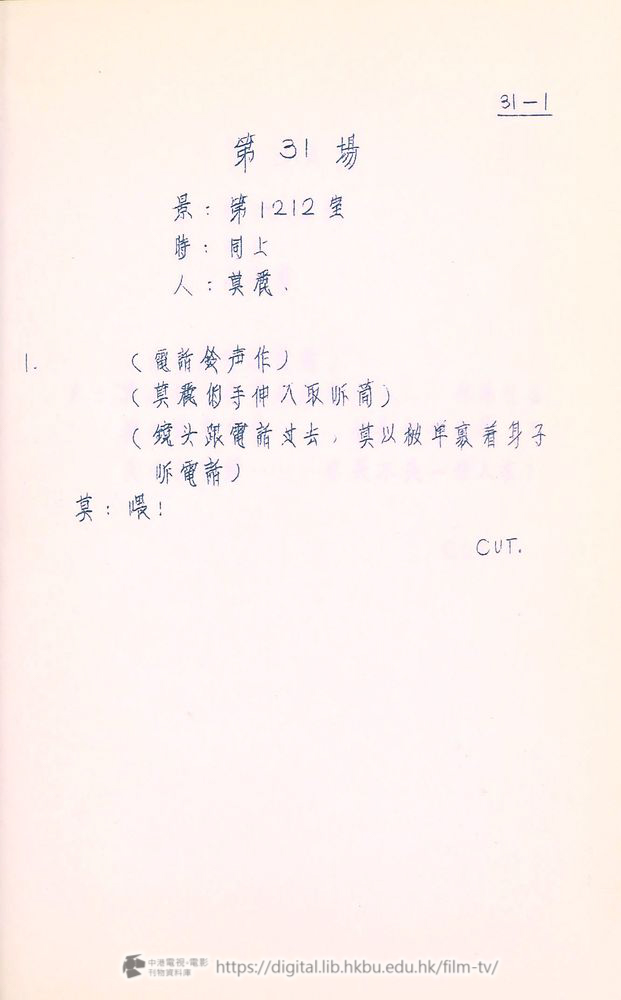 31-1
第 31 場
景：第1212室
時：同上
人：莫震.
1. （電話鈴声作）
（莫震的手伸入取听筒）
（鏡头跟電話过去，莫以被单裹着身子
听電話）
莫：喂！
CUT.
中港電視·電影
刊物資料庫
https://digital.lib.hkbu.edu.hk/film-tv/